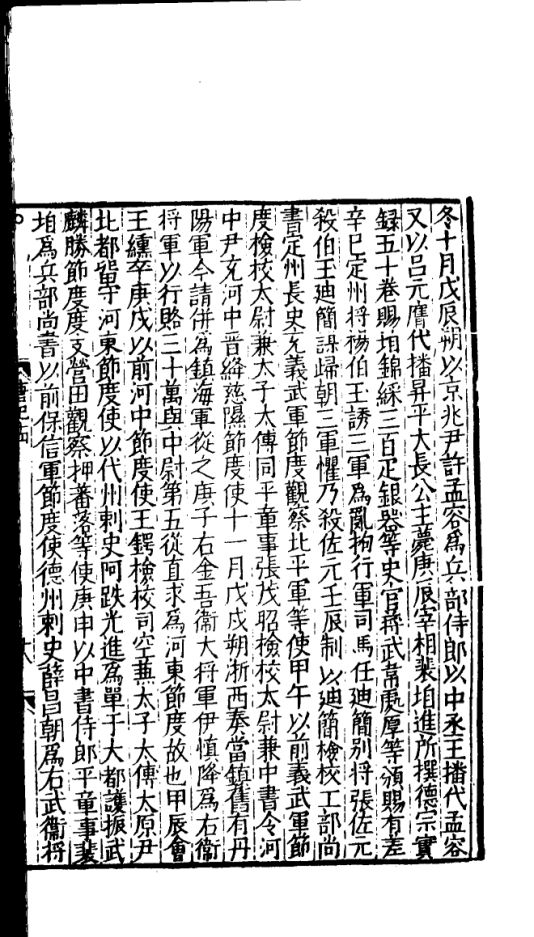 冬十月戊辰朔以京兆尹許孟容爲兵部侍郎以中丞王播代孟容
又以呂元膺代播昇平大長公主薨庚辰宰相裴垍進所撰德宗實
録五十卷賜垍錦綵三百疋銀器等史官蔣武韋處厚等頒賜有差
辛巳定州將楊伯玉誘三軍爲亂拘行軍司馬任迪簡别將張佐元
殺伯玉迪簡謀歸朝三軍懼乃殺佐元壬辰制以迪簡檢校工部尚
書定州長史充義武軍節度觀察北平軍等使甲午以前義武軍節
度檢校太尉兼太子太傅同平章事張茂昭檢校太尉兼中書令河
中尹充河中晋絳慈隰節度使十一月戊戌朔浙西奏當鎮舊有丹
陽軍今請併爲鎮海軍從之庚子右金吾衞大將軍伊慎降爲右衞
將軍以行賂三十萬與中尉第五從直求爲河東節度故也甲辰會
王纁卒庚戌以前河中節度使王鍔檢校司空兼太子太傅太原尹
北都留守河東節度使以代州刺史阿跌光進爲單于大都護振武
麟勝節度度支營田觀察押蕃落等使庚申以中書侍郎平章事裴
垍爲兵部尚書以前保信軍節度使德州刺史薛昌朝爲右武衞將
唐紀十四